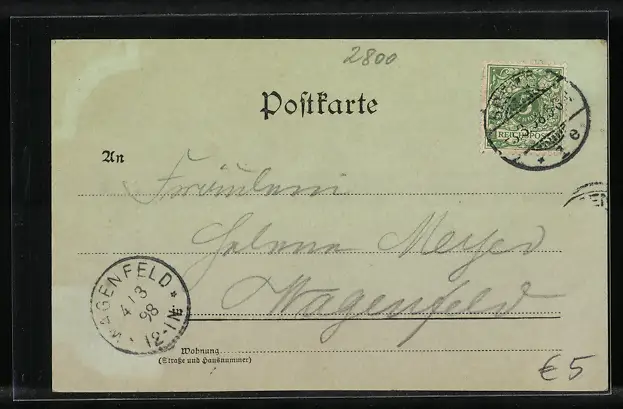 2800
Postkarte
REICHSPOST
* 1 e
An
Fräulein
Helena Meyer
Wagenfeld
WAGENFELD *
4/3
98
12-1N
Wohnung
(Straße und Hausnummer)
€5